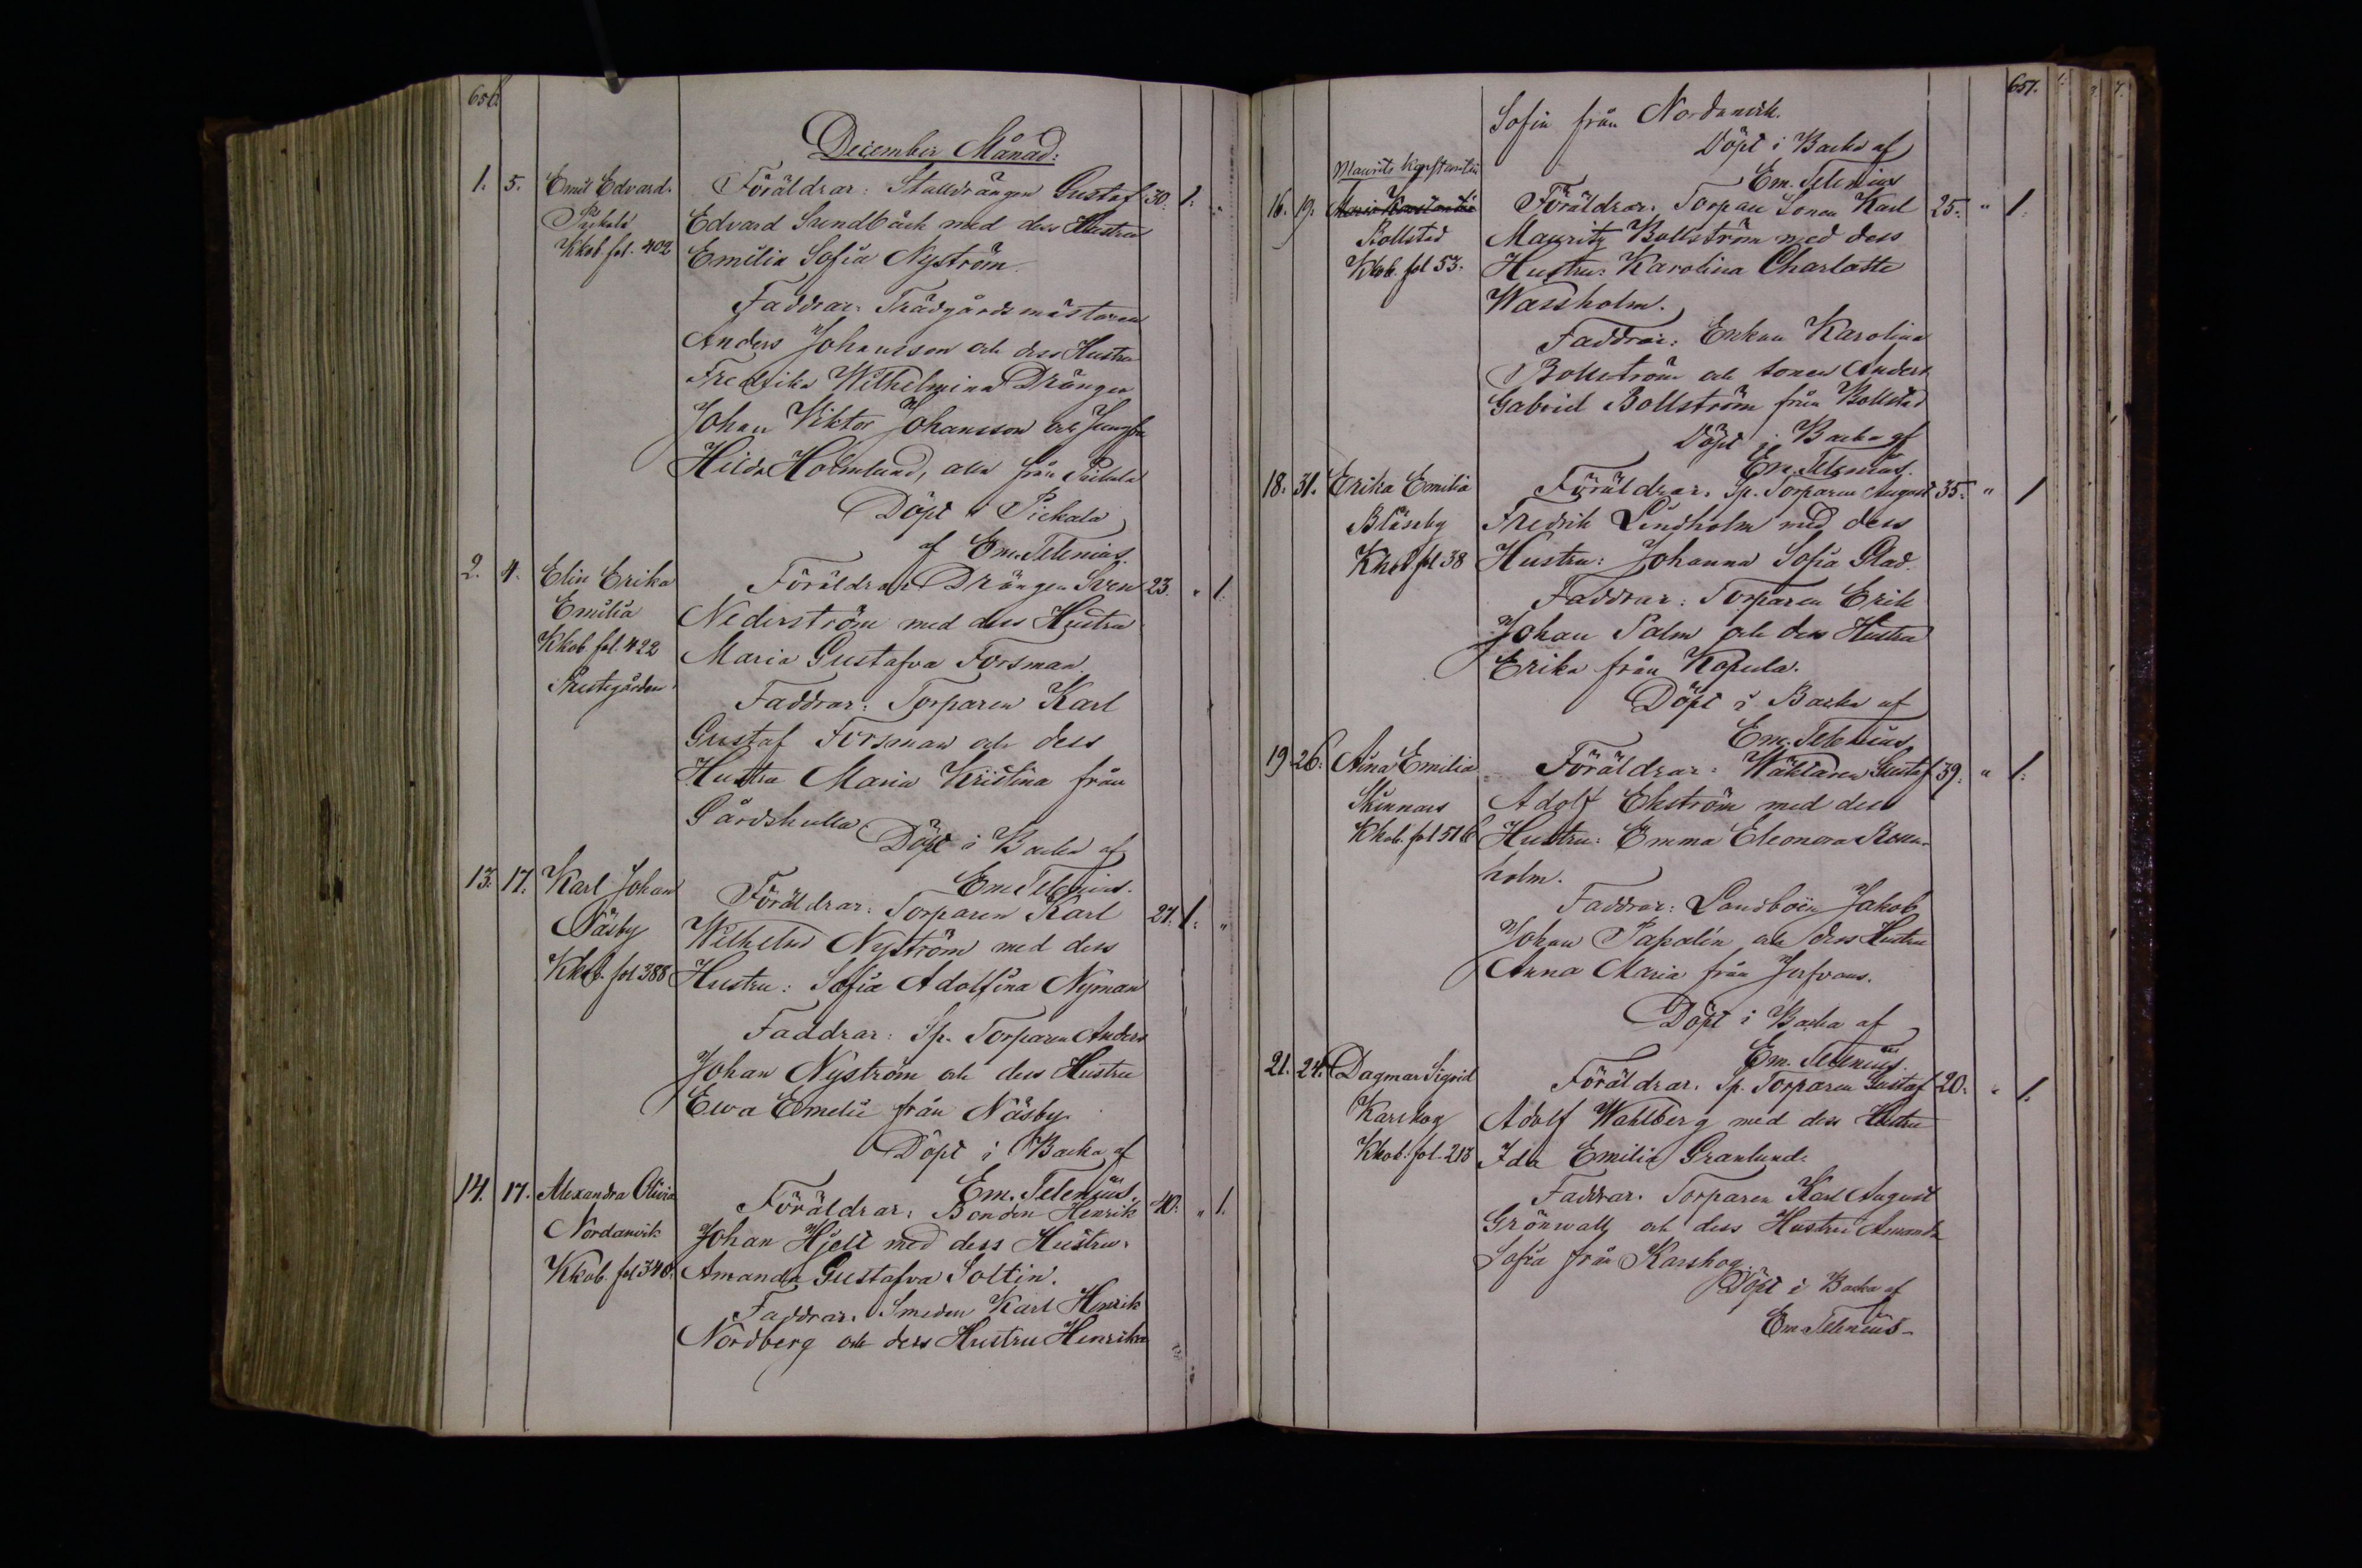 656.
December Månad:
1. 5. Emil Edvard. Föräldrar: Stalldrängen Gustaf 30. 1. "
Pickala Edvard Sundbäck med dess Hustru
Kkob. fol. 402 Emilia Sofia Nyström.
Faddrar: Trädgårdsmästaren
Anders Johansson och dess Hustru
Fredrika Wilhelmina Drängen
Johan Viktor Johansson och Jungfru
Hilda Holmlund, alla från Pickala
Döpt i Pickala
af Em. Telenius.
2. 4. Elin Erika Föräldrar: Drängen Sven 23. " 1.
Emilia Nederström med dess Hustru
Kkob. fol. 422 Maria Gustafva Forsman.
Prestegården Faddrar: Torparen Karl
Gustaf Forsman och dess
Hustru Maria Kristina från
Gårdskulla Döpt i Backa af
Em. Telenius.
13. 17. Karl Johan Föräldrar: Torparen Karl 27. 1. "
Näsby Wilhelm Nyström med dess
Kkob. fol 388 Hustru: Sofia Adolfina Nyman
Faddrar: Sp. Torparen Anders
Johan Nyström och dess Hustru
Ewa Emelie från Näsby.
Döpt i Backa af
Em. Telenius.
14. 17. Alexandra Olivia Föräldrar: Bonden Henrik 40. " 1.
Nordanvik Johan Hjelt med dess Hustru.
Kkob. fol 340. Amanda Gustafva Soltin.
Faddrar: Smeden Karl Henrik
Nordberg och dess Hustru Henrika
657.
Sofia från Nordanvik.
Döpt i Backa af
Em. Telenius
Maurits Konstantin
16. 19. Maria Konstantia Föräldrar: Torpare Sonen Karl 25. " 1.
Bollstad Mauritz Bollström med dess
Kkob. fol 53. Hustru: Karolina Charlotta
Wassholm.
Faddrar: Enkan Karolina
Bollström och sonen Anders
Gabriel Bollström från Bollstad
Döpt i Backa af
Em. Telenius.
18. 31. Erika Emilia Föräldrar: Sp. Torparen August 35. " 1
Bläseby Fredrik Lindholm med dess
Kkob fol 38 Hustru: Johanna Sofia Glad.
Faddrar: Torparen Erik
Johan Palm och dess Hustru
Erika från Kopula.
Döpt i Backa af
Em. Telenius
19. 26. Aina Emilia Föräldrar: Wäktaren Gustaf 39. " 1.
Skinnars Adolf Ekström med dess
Kkob. fol 516 Hustru: Emma Eleonora Rosen-
holm.
Faddrar: Landboen Jakob
Johan Papalin och dess Hustru
Anna Maria från Jerfvans.
Döpt i Backa af
Em. Telenius.
21. 24. Dagmar Sigrid Föräldrar: Sp. Torparen Gustaf 20. " 1.
Karskog Adolf Wahlberg med dess Hustru
Kkob. fol. 213 Ida Emilia Granlund.
Faddrar: Torparen Karl August
Grönwall och dess Hustru Amanda
Sofia från Karskog.
Döpt i Backa af
Em. Telenius.